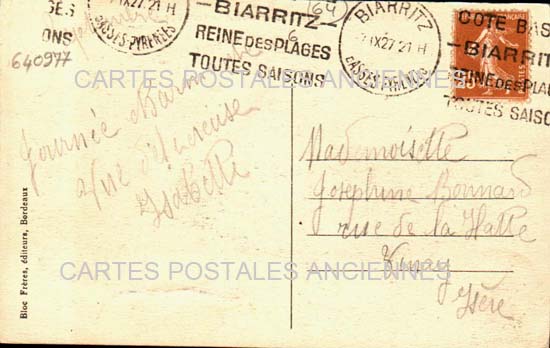 GES
ONS
BASSES-PYRÉNÉES
-BIARRITZ-
REINE DES PLAGES
TOUTES SAISONS
(64)
6
BIARRITZ
IX27 21 H
BASSES-PYRÉNÉES
COTE BAS
-BIARRI
REINE DES PLA
TOUTES SAISO
640977
CARTES POSTALES ANCIENNES
Journée
Isabelle
Mademoiselle
Josephine Bonnard
rue de la Halle
Vinay
Isère
CARTES POSTALES ANCIENNES
Bloc Frères, éditeurs, Bordeaux